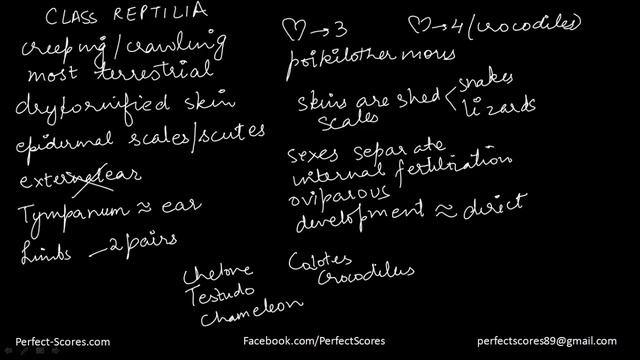 CLASS REPTILIA
creeping/crawling
most terrestrial
dry/cornified skin
epidermal scales/scutes
external ear
Tympanum ≈ ear
Limbs – 2 pairs
♡ → 3 ♡ → 4 (crocodiles)
poikilothermous
skins are shed < snakes
scales lizards
sexes separate
internal fertilization
oviparous
development ≈ direct
Chelone
Testudo
Chameleon
Calotes
Crocodilus
Perfect-Scores.com
Facebook.com/PerfectScores
perfectscores89@gmail.com